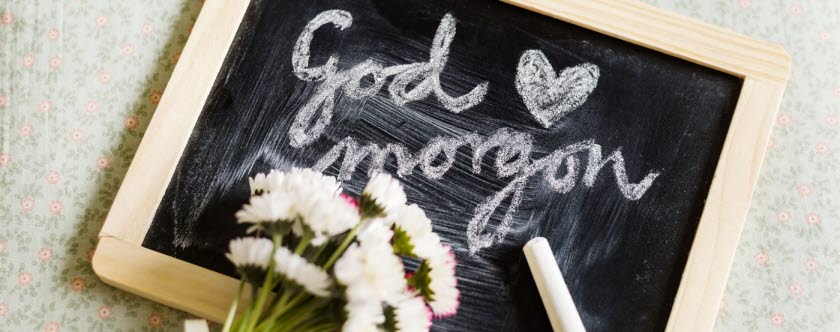 God
morgon